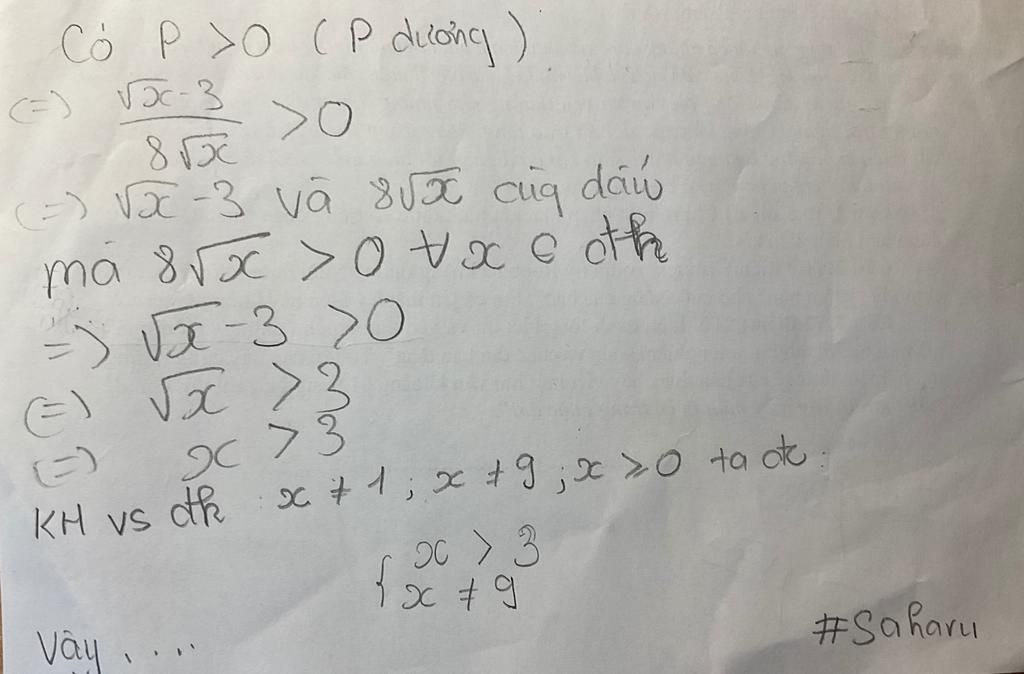 Có P > 0 ( P dương )
(=) √x - 3 / 8√x > 0
(=) √x - 3 và 8√x cùg dấu
mà 8√x > 0 ∀x ∈ đtk
=> √x - 3 > 0
(=) √x > 3
(=) x > 3
KH vs đtk : x ≠ 1 ; x ≠ 9 ; x ≥ 0 ta đc :
{ x > 3
x ≠ 9
Vậy . . . .
#Saharu